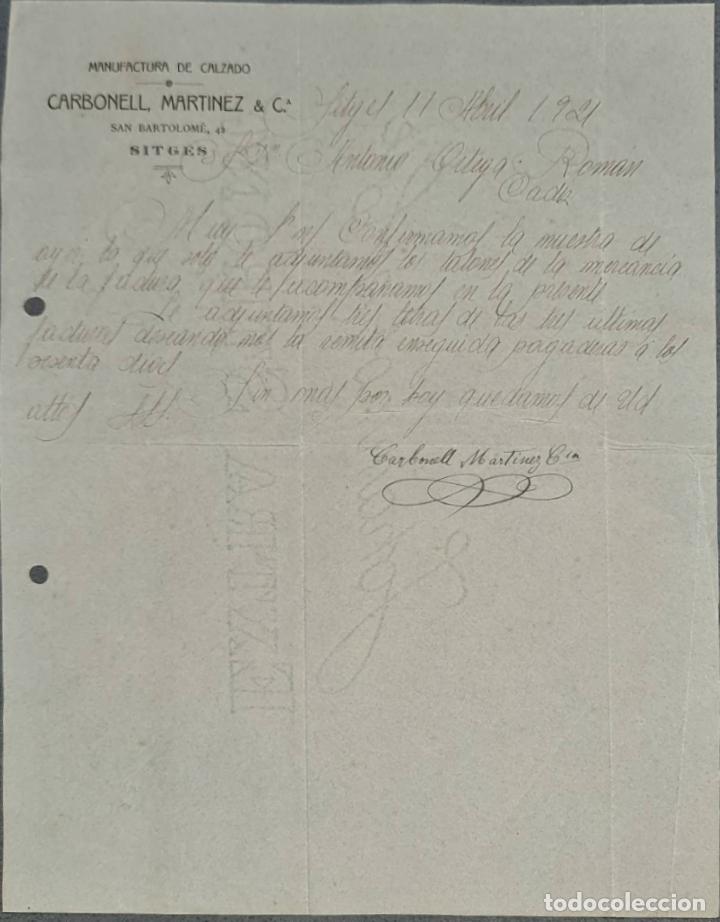 MANUFACTURA DE CALZADO
CARBONELL, MARTINEZ & C.ª
SAN BARTOLOMÉ, 42
SITGES
Sitges 11 Abril 1921
Sr. Antonio Ortega Roman
Cadiz
Muy Sres Confirmamos la muestra de
ayer, lo que solo le adjuntamos los talones de la mercancia
de la factura, que le acompañamos en la presente
Le adjuntamos tres letras de las tres ultimas
factures deseando nos la remita enseguida pagaderas a los
sesenta dies
Sin mas por hoy quedamos de Vd
attes SSS.
Carbonell Martinez Cia
todocoleccion